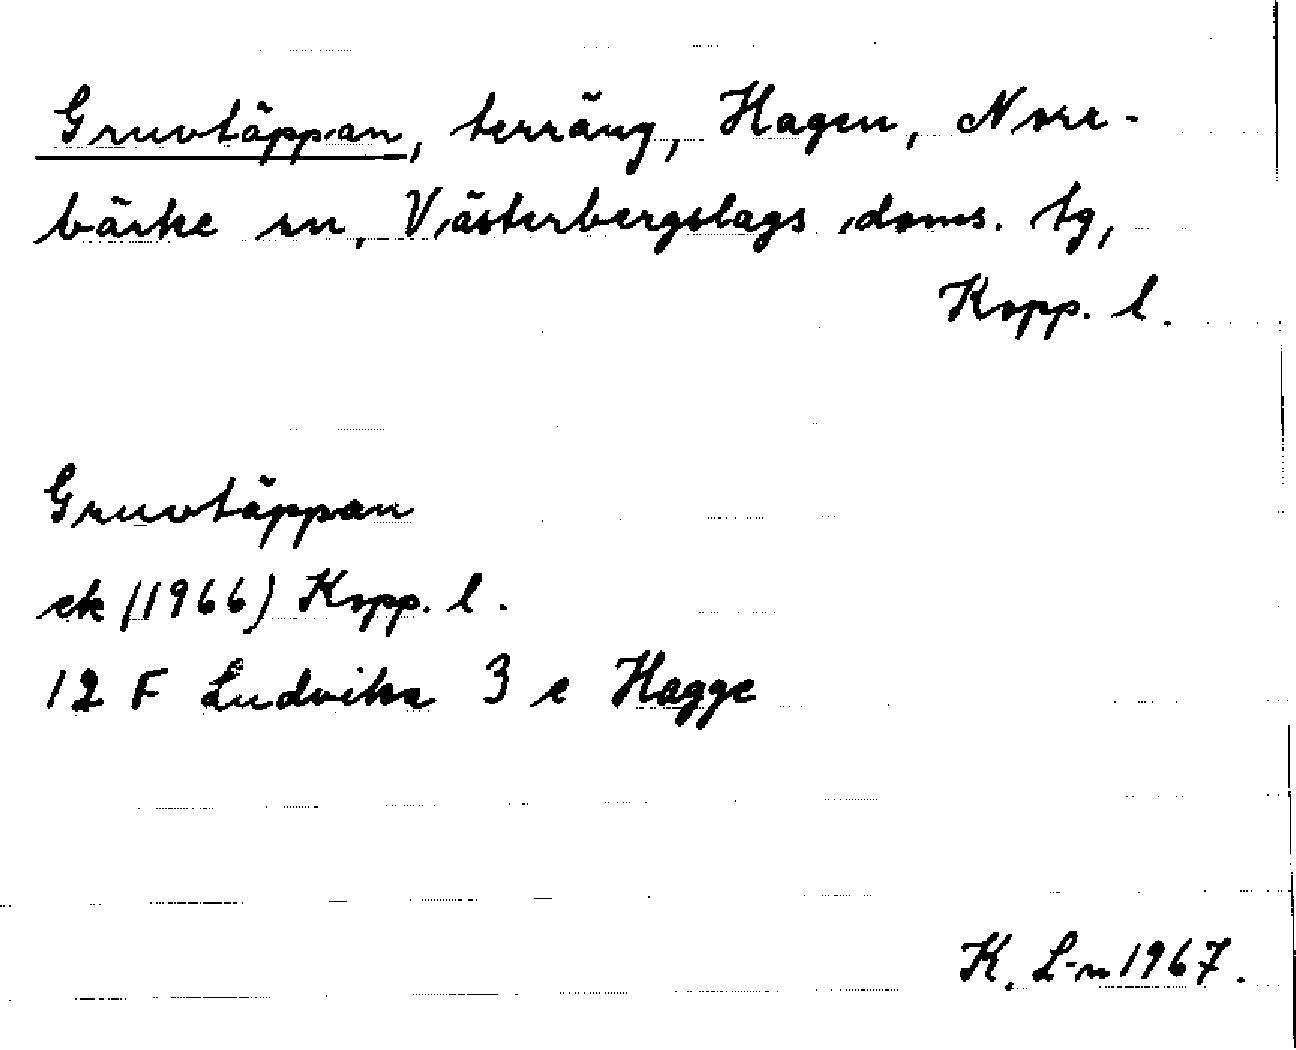 Gruvtäppan, terräng, Hagen, Norr-
bärke sn, Västerbergslags doms. tg,
Kopp. l.
Gruvtäppan
ek (1966) Kopp. l.
12 F Ludvika 3 e Hagge
K. L-n 1967.